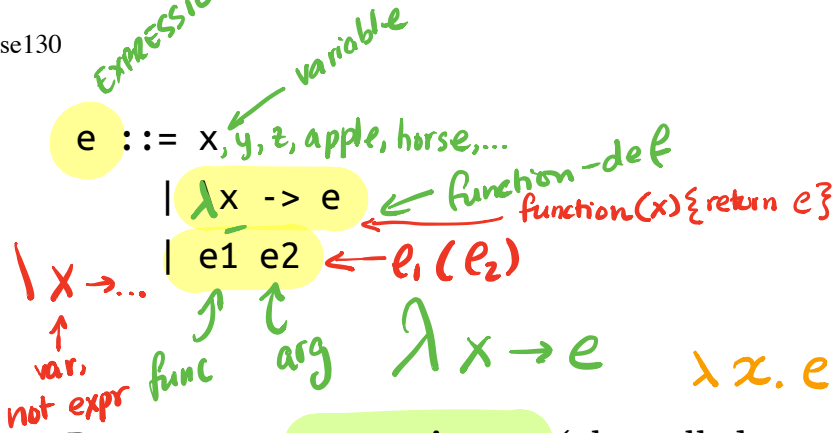 se130
EXPRESSI
variable
e ::= x, y, z, apple, horse,...
| λx -> e
function-def
function(x){return e}
| e1 e2
e₁(e₂)
\x →...
var,
not expr
func
arg
λx → e
λx. e